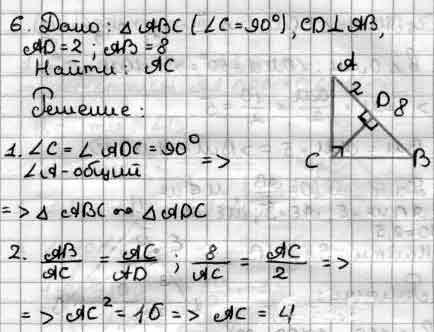 6. Дано: △ ABC (∠C = 90°), CD ⊥ AB,
AD = 2 ; AB = 8
Найти: AC
Решение:
A
2
D 8
C B
1. ∠C = ∠ ADC = 90° =>
∠A - общий
=> △ ABC ∾ △ ADC
2. AB/AC = AC/AD ; 8/AC = AC/2 =>
=> AC² = 16 => AC = 4